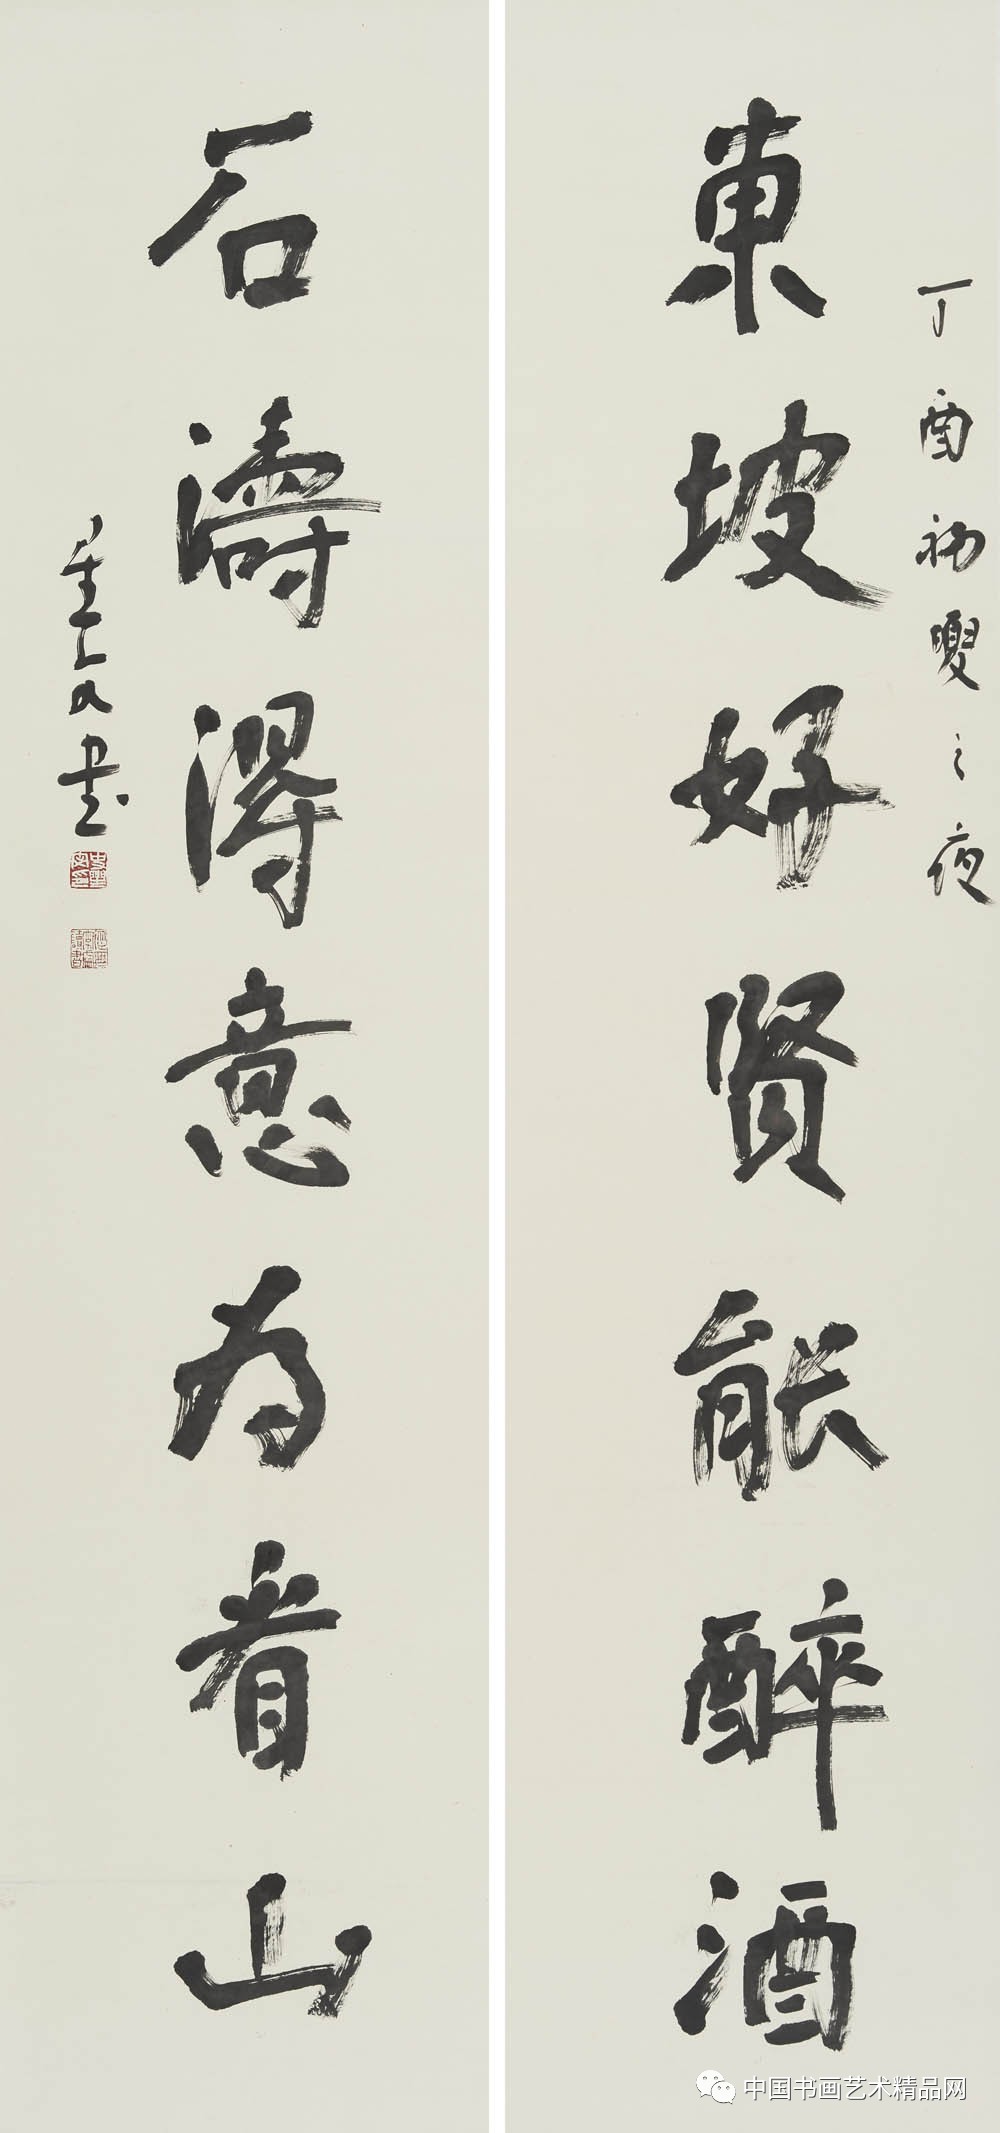 丁酉初夏之夜
東坡好贤能醉酒
石濤得意为看山
中国书画艺术精品网